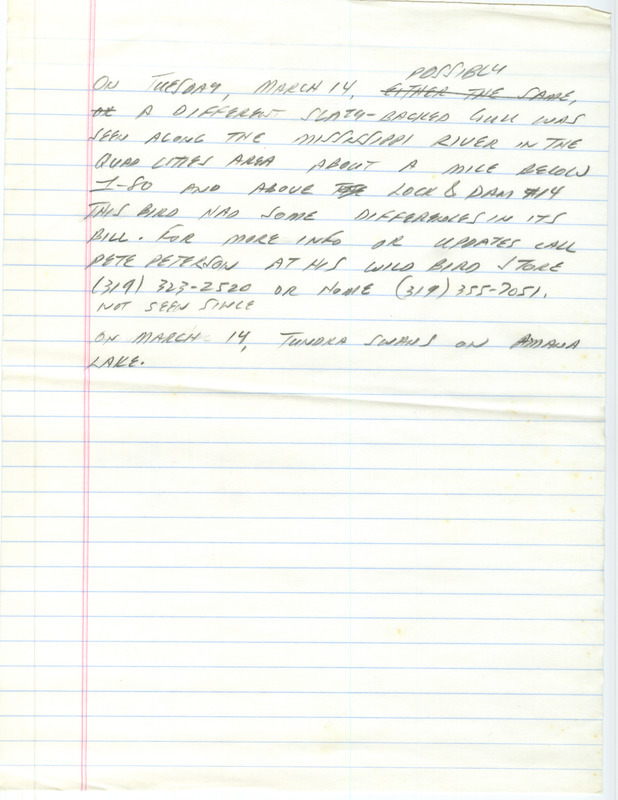 POSSIBLY
ON TUESDAY, MARCH 14, EITHER THE SAME,
OR A DIFFERENT SLATY-BACKED GULL WAS
SEEN ALONG THE MISSISSIPPI RIVER IN THE
QUAD CITIES AREA ABOUT A MILE BELOW
I-80 AND ABOVE LOCK & DAM #14
THIS BIRD HAD SOME DIFFERENCES IN ITS
BILL. FOR MORE INFO OR UPDATES CALL
PETE PETERSON AT HIS WILD BIRD STORE
(319) 323-2520 OR HOME (319) 355-7051.
NOT SEEN SINCE
ON MARCH 14, TUNDRA SWANS ON AMANA
LAKE.